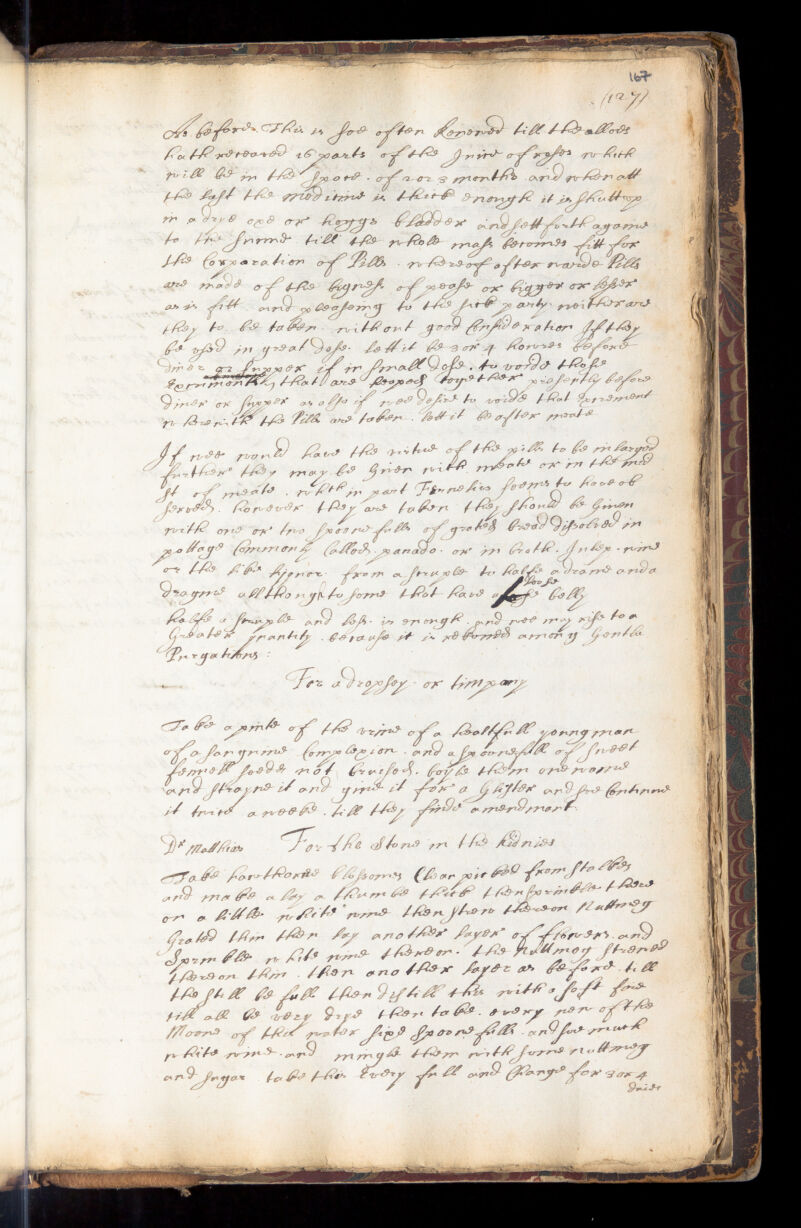 167
(127)
As before. This is soe often Renewed till the alloes
hath receaved 16 parts of the Juice of roses which
will be in the space of 2 or 3 months and when att
the last the medicine is thick enough it is shutt up
in a drye oxe or hoggs bladder and sett forth againe
to the sunne till the whole mass becomes fitt for
the Corporation of Pills whereof afterwarde Pills
are made of the bigness of pease or bigger or lesser
as is fitt and pleaseing to the sick party neither are
they to be taken without good Consideration If they
be used in great dose lett it be 3 or 4 howres before
diner or supper if in small dose to voide those
Excrements that are heaped together presently before
diner or supper as also if wee desire to voide that Excrement
wherewith the Pills are taken lett it be after meate
If wee would have the virtue of the pills to be inlarged
further they may be given with meate or in the mid
st of meate which in part Fernelius seems to have ob
served. however they are taken they should be Given
with one or two spoonefulls of grated bread dissolved in
pottage Commonly Called panado or in broth Julep wine
or the like lyquor from a scruple to halfe a drame and a
dragme allthough to some that have a loose belly
halfe a scruple and less is enough and wee may rise to a
Greater quantity because it is reckoned among Gentle
Purgations:
For a dropsey or timpany
Take a pinte of the urine of a healtfull young man
of a sanguine Complexion and a spoonefull of sweet
fennell seede not bruised. boyle them one wame
and strayne it and give it for a Glister and soe Continue
it twice a weeke till they finde amendment
Dr Matthias For the Stone in the Kidnies
Take hawthorne blossomes Clean picked from stalkes
and make a lay a thumbe thick then sprinkle there
on a little white wine then strew thereon Nuttmeg
Grated thin then lay another layer of flowers and
Sprinkle white wine thereon. the Nuttmeg strewed
thereon thin then another layer as before till
the still be full then distill this with a soft fire
till all be very drye then take every new of the
Moone of this water sixe spoonefulls and soe much
white wine and mingle them with some nuttmeg
and sugar take this Every full and Change for 3 or 4
daies